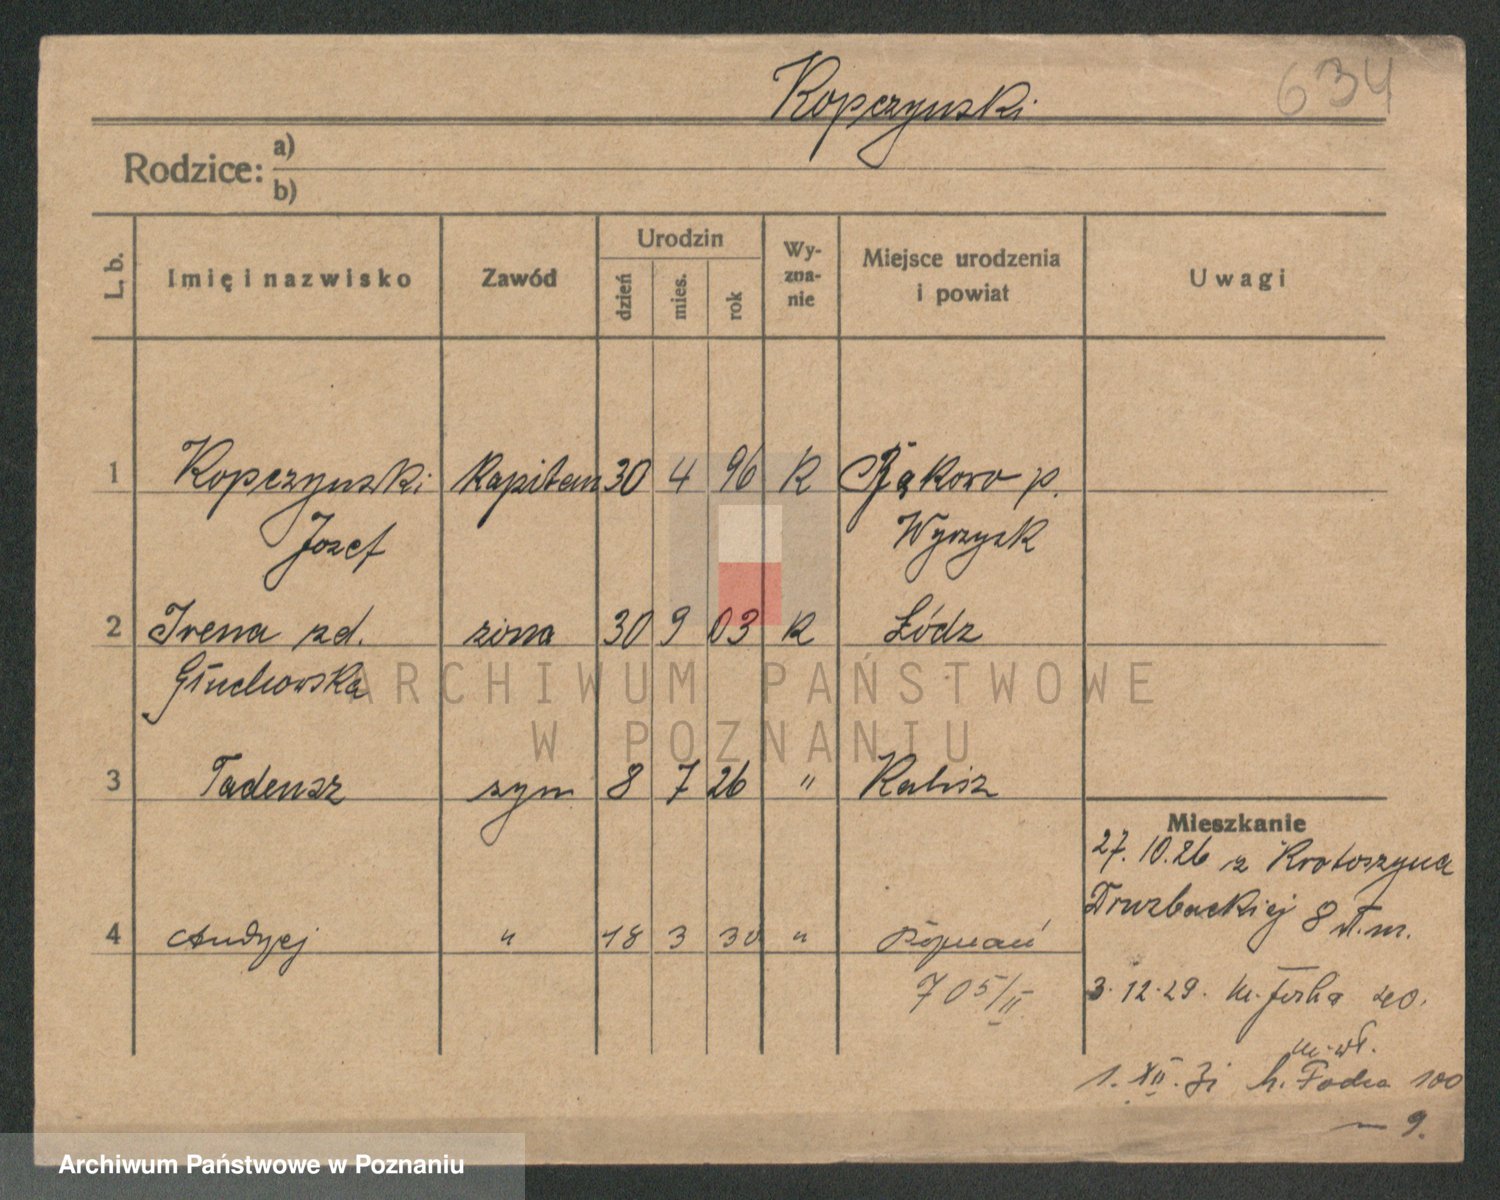 Kopczynski
634
Rodzice: a)
b)
L. b.
Imię i nazwisko
Zawód
Urodzin
dzień
mies.
rok
Wy-
zna-
nie
Miejsce urodzenia
i powiat
Uwagi
1 Kopczynski Kapitan 30 4 96 K Bąkowo p.
Jozef Wyrzysk
2 Irena zd. zona 30 9 03 K Łódz
Głuchowska
3 Tadeusz syn 8 7 26 " Kalisz
Mieszkanie
27.10.26 z Krotoszyna
Druzbackiej 8 W.m.
4 Andrzej " 18 3 30 " Poznań
705/II
3.12.29. m. Focha 20.
m. wł.
1. XII. 31 m. Focha 100
— 9.
ARCHIWUM PAŃSTWOWE
W POZNANIU
Archiwum Państwowe w Poznaniu